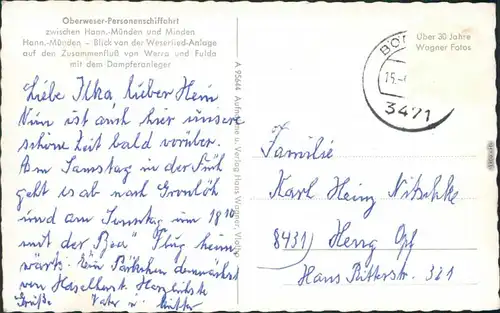 Oberweser-Personenschiffahrt
zwischen Hann.-Münden und Minden
Hann.-Münden – Blick von der Weserlied-Anlage
auf den Zusammenfluß von Werra und Fulda
mit dem Dampferanleger
Liebe Ilka, lieber Hein
Nun ist auch hier unsere
schöne Zeit bald vorüber.
Am Samstag in der Früh
geht es ab nach
und am Sonntag um 18
mit der Flug heim
wärts. Ein Päckchen demnächst
von Haselhorst. Herzlichste
Grüße. Vater u. Mutter
A 95644 Aufnahme u. Verlag Hans Wagner, Vlotho
Über 30 Jahre
Wagner Fotos
3471
Familie
Karl Heinz Nitschke
8431) Heng Opf
Hans Ritterstr. 321